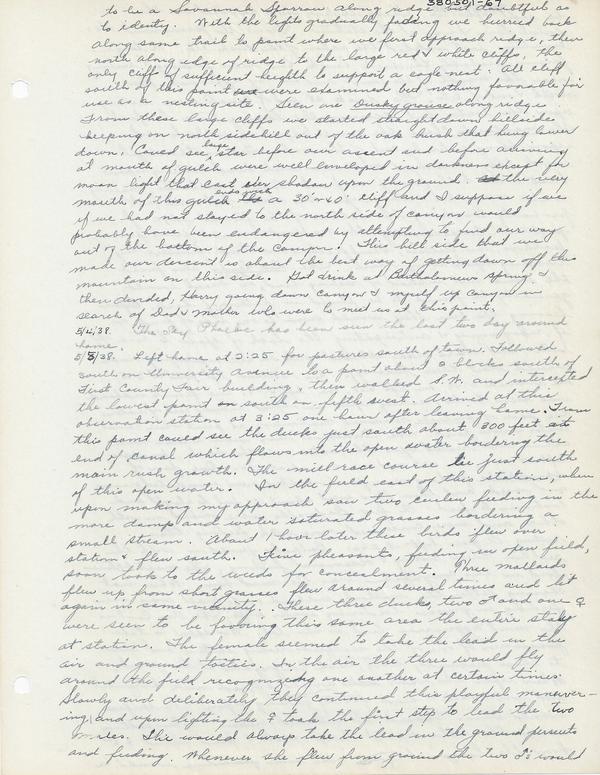 380501-67
to be a Savannah Sparrow along ridge but doubtful as
to identy. With the lights gradually fading we hurried back
along same trail to point where we first approach ridge, then
north along edge of ridge to the large red & white cliffs, the
only cliffs of sufficient heighth to support a eagle nest. All cliff
south of this point were examined but nothing favorable for
use as a nesting site. Seen one Dusky grouse along ridge
From these large cliffs we started straight down hillside
keeping on north sidehill out of the oak brush that hung lower
down. Coued see large star before our assent and before arriving
at mouth of gulch were well enveloped in darkness except for
moon light that cast shadow upon the ground. the very
mouth of this gulch a 30' or 40' cliff and I suppose if we
if we had not stayed to the north side of canyon would
probably have been endangered by attempting to find our way
out of the bottom of the canyon. This hill side that we
made our descent is about the best way of getting down off the
mountain on this side. Got drink at Bartholomews Spring &
then devided, Harry going down canyon & myself up canyon in
search of Dad & Mother who were to meet us at this point.
5/4/38. The Say Phoebe has been seen the last two day around
home.
5/5/38. Left home at 2:25 for pastures south of town. Followed
south on University Avenue to a point about 2 blocks south of
First County Fair building, then walked S.W. and intercepted
the lowest point on south on fifth west. Arrived at this
observation station at 3:25 one hour after leaving home. From
this point could see the ducks just south about 300 feet
end of canal which flows into the open water bordering the
main rush growth. The mill race course lie just south
of this open water. In the field east of this station, when
upon making my approach saw two curlew feeding in the
more damp and water saturated grasses bordering a
small stream. About 1 hour later these birds flew over
station & flew south. Five pheasants, feeding in open field,
soon took to the weeds for concealment. Three mallards
flew up from short grasses flew around several times and lit
again in same vicinity. These three ducks, two ♂ and one ♀
were seen to be favoring this same area the entire stay
at station. The female seemed to take the lead in the
air and ground tactics. In the air the three would fly
around the field recognizedng one another at certain times.
Slowly and deliberately they continued this playful maneuver-
ing, and upon lighting the ♀ took the first step to lead the two
males. She would always take the lead in the ground persuets
and feeding. Whenever she flew from ground the two ♂'s would